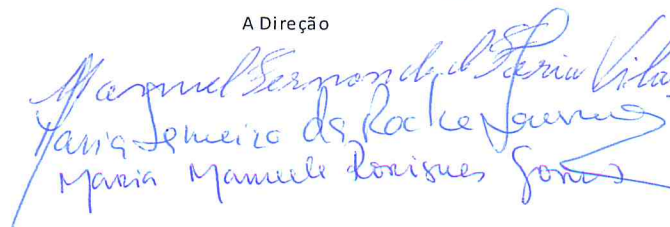 A Direção
Manuel Fernando d Faria Vila
Maria da Rocha
Maria Manuela Rodrigues Gomes